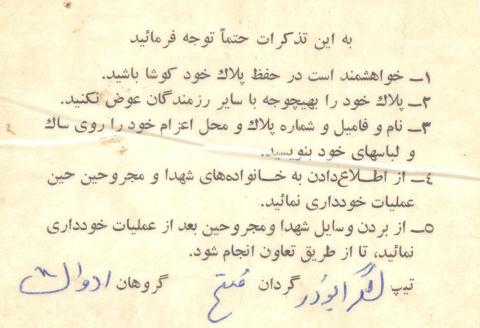 به این تذکرات حتماً توجه فرمائید
۱ــ خواهشمند است در حفظ پلاك خود کوشا باشید.
۲ــ پلاك خود را بهیچوجه با سایر رزمندگان عوض نکنید.
۳ــ نام و فامیل و شماره پلاك و محل اعزام خود را روی ساك
و لباسهای خود بنویسید.
٤ــ از اطلاع‌دادن به خانواده‌های شهدا و مجروحین حین
عملیات خودداری نمائید.
۵ــ از بردن وسایل شهدا ومجروحین بعد از عملیات خودداری
نمائید، تا از طریق تعاون انجام شود.
تیپ لشگر ابوذر گردان فتح گروهان